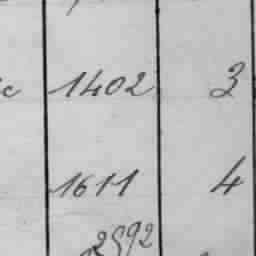 1402 3
1611 4
2592